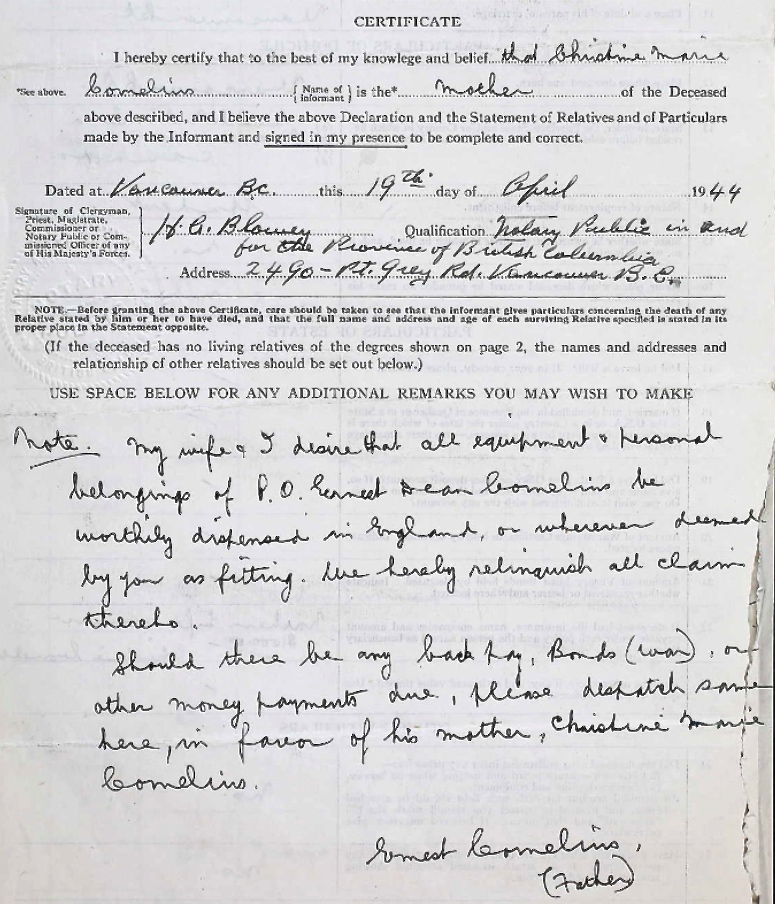 CERTIFICATE
I hereby certify that to the best of my knowlege and belief that Christine Marie
*See above. Cornelius { Name of Informant } is the* Mother of the Deceased
above described, and I believe the above Declaration and the Statement of Relatives and of Particulars
made by the Informant and signed in my presence to be complete and correct.
Dated at Vancouver B.C. this 19th day of April 1944
Signature of Clergyman,
Priest, Magistrate,
Commissioner or
Notary Public or Com-
missioned Officer of any
of His Majesty's Forces.
H. G. Blowey Qualification Notary Public in and
for the Province of British Columbia
Address 2490 - Pt. Grey Rd. Vancouver B.C.
NOTE.—Before granting the above Certificate, care should be taken to see that the informant gives particulars concerning the death of any
Relative stated by him or her to have died, and that the full name and address and age of each surviving Relative specified is stated in its
proper place in the Statement opposite.
(If the deceased has no living relatives of the degrees shown on page 2, the names and addresses and
relationship of other relatives should be set out below.)
USE SPACE BELOW FOR ANY ADDITIONAL REMARKS YOU MAY WISH TO MAKE
Note. My wife & I desire that all equipment & personal
belongings of P.O. Earnest Dean Cornelius be
worthily dispensed in England, or wherever deemed
by you as fitting. We hereby relinquish all claim
thereto.
Should there be any back pay, Bonds (war), or
other money payments due, please despatch same
here, in favor of his mother, Christine Marie
Cornelius.
Ernest Cornelius,
(Father)